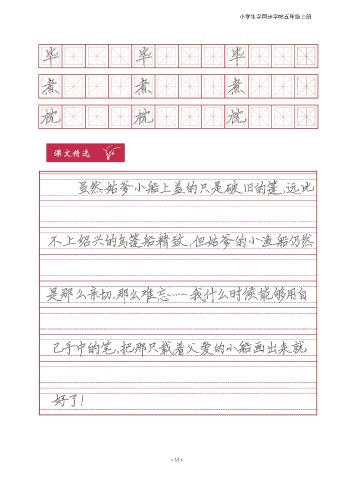 小学生字同步字帖五年级上册
毕 毕 毕
煮 煮 煮
枕 枕 枕
课文精选
虽然姑爹小船上盖的只是破旧的篷,远比
不上绍兴的乌篷船精致,但姑爹的小渔船仍然
是那么亲切,那么难忘……我什么时候能够用自
己手中的笔,把那只载着父爱的小船画出来就
好了!